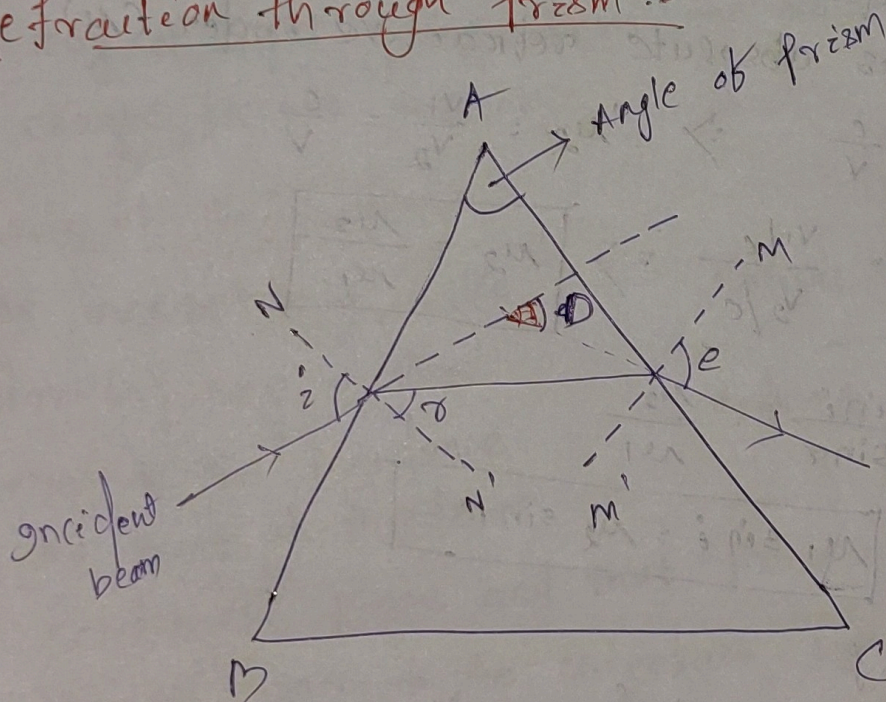 efraction through Prism :-
A
Angle of Prism
N
M
D
i
r
e
N'
M'
Incident
beam
B
C